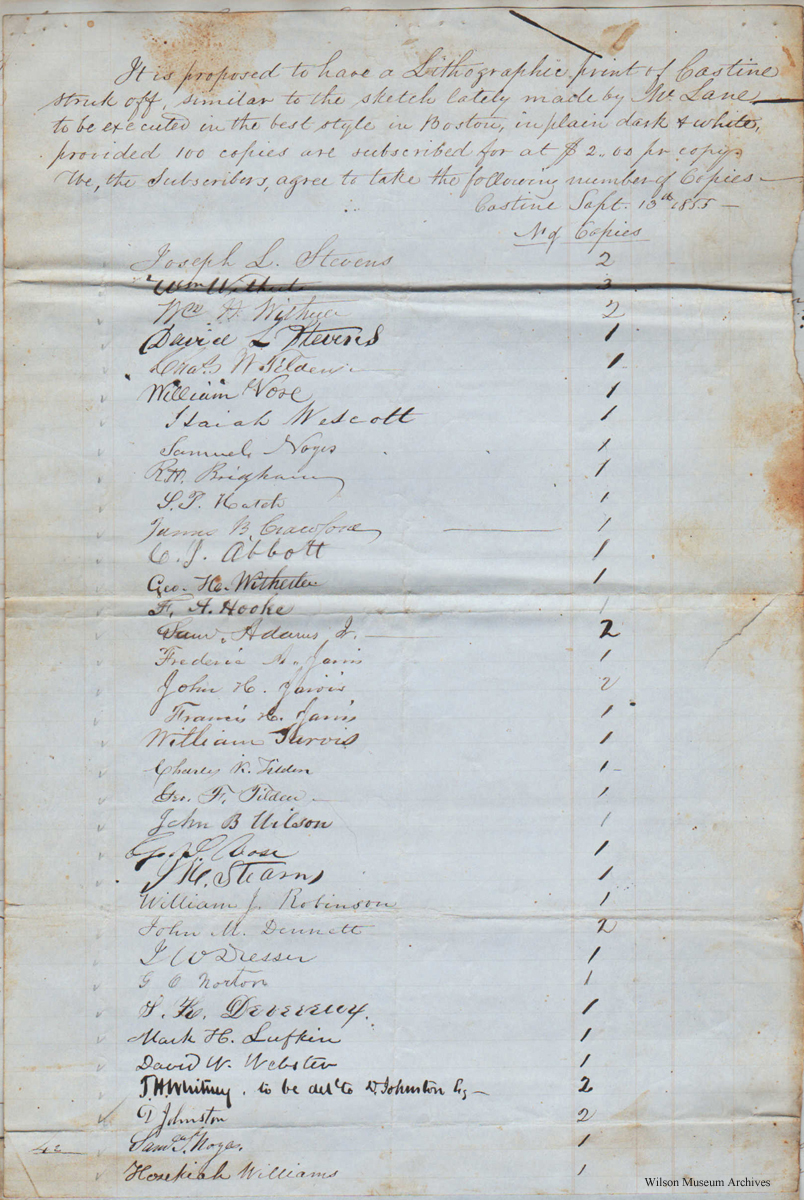 It is proposed to have a Lithographic print of Castine
struck off, similar to the sketch lately made by Mr Lane,
to be executed in the best style in Boston, in plain dark & white,
provided 100 copies are subscribed for at $2.00 pr copy.
We, the Subscribers, agree to take the following number of Copies—
Castine Sept. 10th 1855—
No of Copies
Joseph L. Stevens 2
3
Wm H. Witherle 2
David L Stevens 1
Chas W Tilden 1
William Vose 1
Isaiah Wescott 1
Samuel Noyes 1
R.H. Bridgham 1
S.P. Hatch 1
James B. Crawford 1
C. J. Abbott 1
Geo. H. Witherle 1
F. A. Hooke 1
Saml. Adams Jr. 2
Frederic A. Jarvis 1
John H. Jarvis 2
Francis H. Jarvis 1
William Jarvis 1
Charles K. Tilden 1
Geo. F. Tilden 1
John B Wilson 1
Vose 1
J K. Stearns 1
William J. Robinson 1
John M. Dennett 2
J W Dresser 1
G C Norton 1
S. K. Devereux. 1
Mark H. Lufkin 1
David W. Webster 1
J.H. Whitney. to be deld to D. Johnston Esq— 2
D Johnston 2
Saml. T. Noyes. 1
42
Hezekiah Williams 1
Wilson Museum Archives